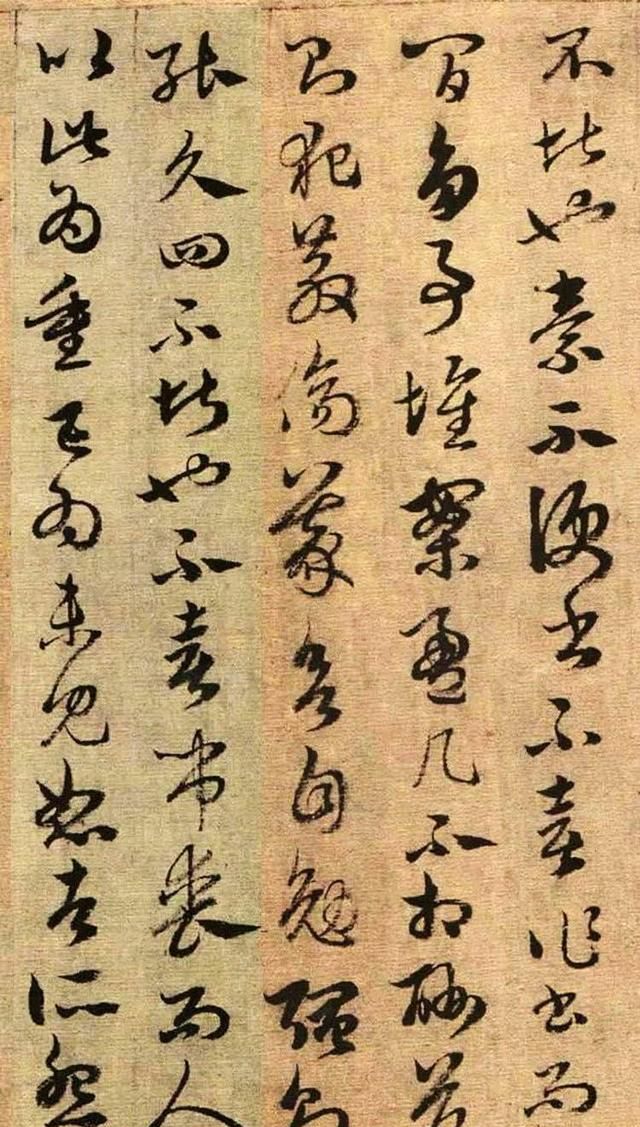 不堪也素不便書不喜作書而
間多事堆案盈几不相酬答
則犯教傷義欲自勉強則
能久四不堪也不喜弔喪而人
以此為重已為未見恕者所怨